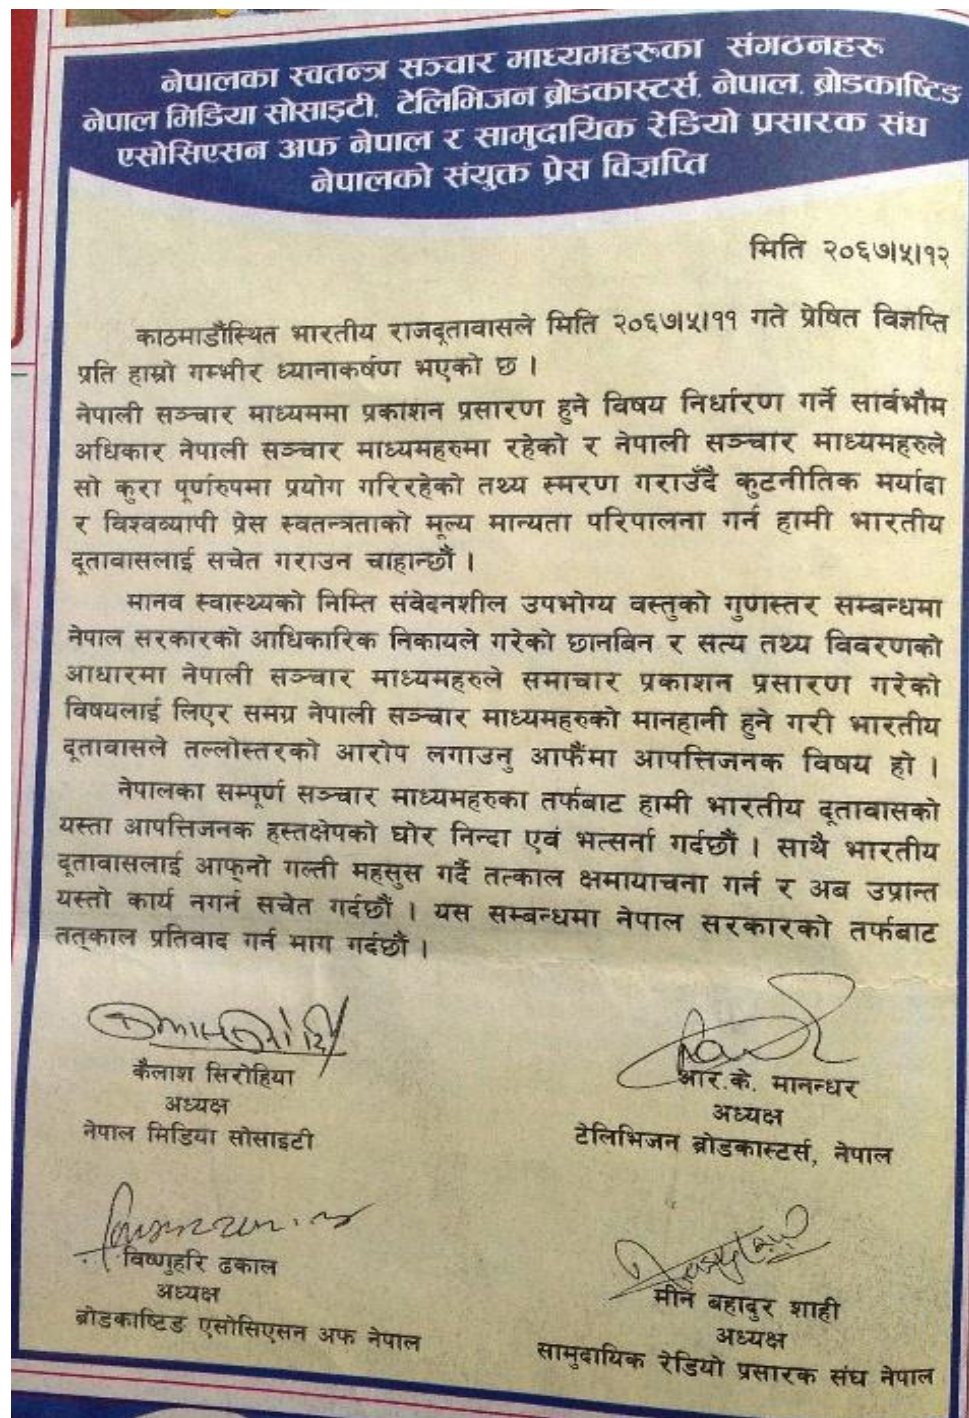 नेपालका स्वतन्त्र सञ्चार माध्यमहरुका संगठनहरू
नेपाल मिडिया सोसाइटी, टेलिभिजन ब्रोडकास्टर्स, नेपाल, ब्रोडकाष्टिङ
एसोसिएसन अफ नेपाल र सामुदायिक रेडियो प्रसारक संघ
नेपालको संयुक्त प्रेस विज्ञप्ति
मिति २०६७।५।१२
काठमाडौंस्थित भारतीय राजदूतावासले मिति २०६७।५।११ गते प्रेषित विज्ञप्ति
प्रति हाम्रो गम्भीर ध्यानाकर्षण भएको छ ।
नेपाली सञ्चार माध्यममा प्रकाशन प्रसारण हुने विषय निर्धारण गर्ने सार्वभौम
अधिकार नेपाली सञ्चार माध्यमहरुमा रहेको र नेपाली सञ्चार माध्यमहरुले
सो कुरा पूर्णरुपमा प्रयोग गरिरहेको तथ्य स्मरण गराउँदै कुटनीतिक मर्यादा
र विश्वव्यापी प्रेस स्वतन्त्रताको मूल्य मान्यता परिपालना गर्न हामी भारतीय
दूतावासलाई सचेत गराउन चाहान्छौं ।
मानव स्वास्थ्यको निम्ति संवेदनशील उपभोग्य वस्तुको गुणस्तर सम्बन्धमा
नेपाल सरकारको आधिकारिक निकायले गरेको छानबिन र सत्य तथ्य विवरणको
आधारमा नेपाली सञ्चार माध्यमहरुले समाचार प्रकाशन प्रसारण गरेको
विषयलाई लिएर समग्र नेपाली सञ्चार माध्यमहरुको मानहानी हुने गरी भारतीय
दूतावासले तल्लोस्तरको आरोप लगाउनु आफैंमा आपत्तिजनक विषय हो ।
नेपालका सम्पूर्ण सञ्चार माध्यमहरुका तर्फबाट हामी भारतीय दूतावासको
यस्ता आपत्तिजनक हस्तक्षेपको घोर निन्दा एवं भत्सर्ना गर्दछौं । साथै भारतीय
दूतावासलाई आफ्नो गल्ती महसुस गर्दै तत्काल क्षमायाचना गर्न र अब उप्रान्त
यस्तो कार्य नगर्न सचेत गर्दछौं । यस सम्बन्धमा नेपाल सरकारको तर्फबाट
तत्काल प्रतिवाद गर्न माग गर्दछौं ।
कैलाश सिरोहिया
अध्यक्ष
नेपाल मिडिया सोसाइटी
आर.के. मानन्धर
अध्यक्ष
टेलिभिजन ब्रोडकास्टर्स, नेपाल
विष्णुहरि ढकाल
अध्यक्ष
ब्रोडकाष्टिङ एसोसिएसन अफ नेपाल
मीन बहादुर शाही
अध्यक्ष
सामुदायिक रेडियो प्रसारक संघ नेपाल